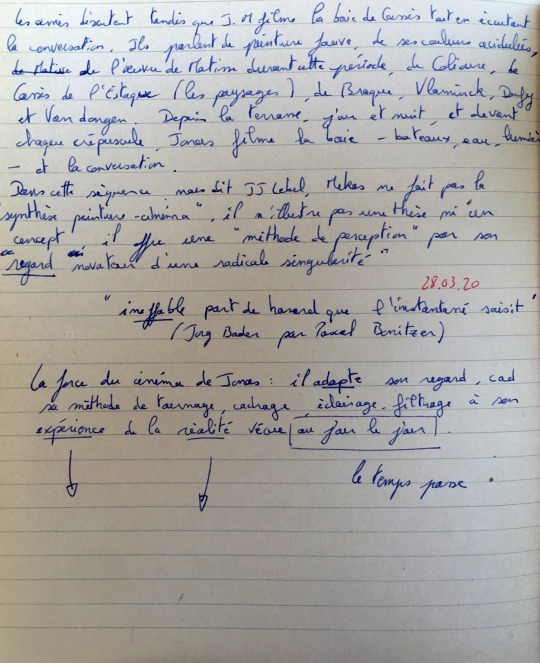 les amis discutent tandis que J. M filme la baie de Cassis tout en écoutant
la conversation. Ils parlent de peinture fauve, de ses couleurs acidulées,
de Matisse de l'œuvre de Matisse durant cette période, de Colioure, de
Cassis de l'Estaque (les paysages), de Braque, Vlaminck, Dufy
et Van dongen. Depuis la terrasse, jour et nuit, et devant
chaque crépuscule, Jonas filme la baie – bateaux, eau, lumière
– et la conversation.
Dans cette séquence nous dit JJ Lebel, Mekas ne fait pas la
"synthèse peinture-cinéma", il n'illustre pas une thèse ni un
concept, il offre une "méthode de perception" par son
"regard novateur d'une radicale singularité"
28.03.20
"ineffable part de hasard que l'instantané saisit"
(Jorg Bader par Pascal Bonitzer)
La force du cinéma de Jonas : il adapte son regard, cad
sa méthode de tournage, cadrage, éclairage, filtrage à son
expérience de la réalité vécue au jour le jour.
le temps passe